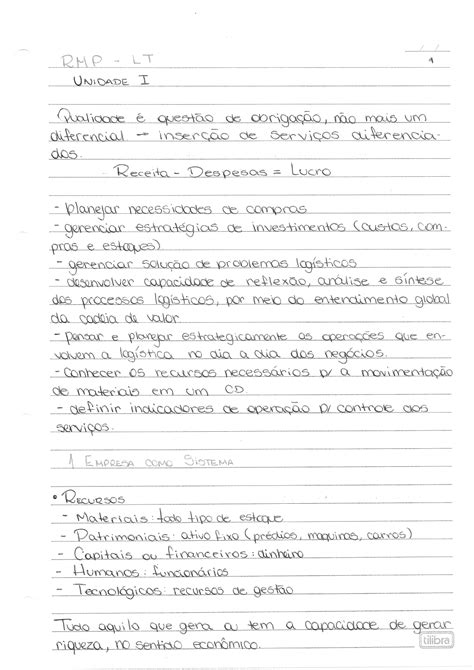 RMP - LT
1
UNIDADE I
Qualidade é questão de obrigação, não mais um
diferencial → inserção de serviços diferencia-
dos.
Receita - Despesas = Lucro
- planejar necessidades de compras
- gerenciar estratégias de investimentos (custos, com-
pras e estoques)
- gerenciar solução de problemas logísticos
- desenvolver capacidade de reflexão, análise e síntese
dos processos logísticos, por meio do entendimento global
da cadeia de valor
- pensar e planejar estrategicamente as operações que en-
volvem a logística no dia a dia dos negócios.
- conhecer os recursos necessários p/ a movimentação
de materiais em um CD
- definir indicadores de operação p/ controle dos
serviços.
1 EMPRESA COMO SISTEMA
• RECURSOS
- Materiais: todo tipo de estoque
- Patrimoniais: ativo fixo (prédios, maquinas, carros)
- Capitais ou financeiros: dinheiro
- Humanos: funcionários
- Tecnológicos: recursos de gestão
Tudo aquilo que gera ou tem a capacidade de gerar
riqueza, no sentido econômico.
tilibra